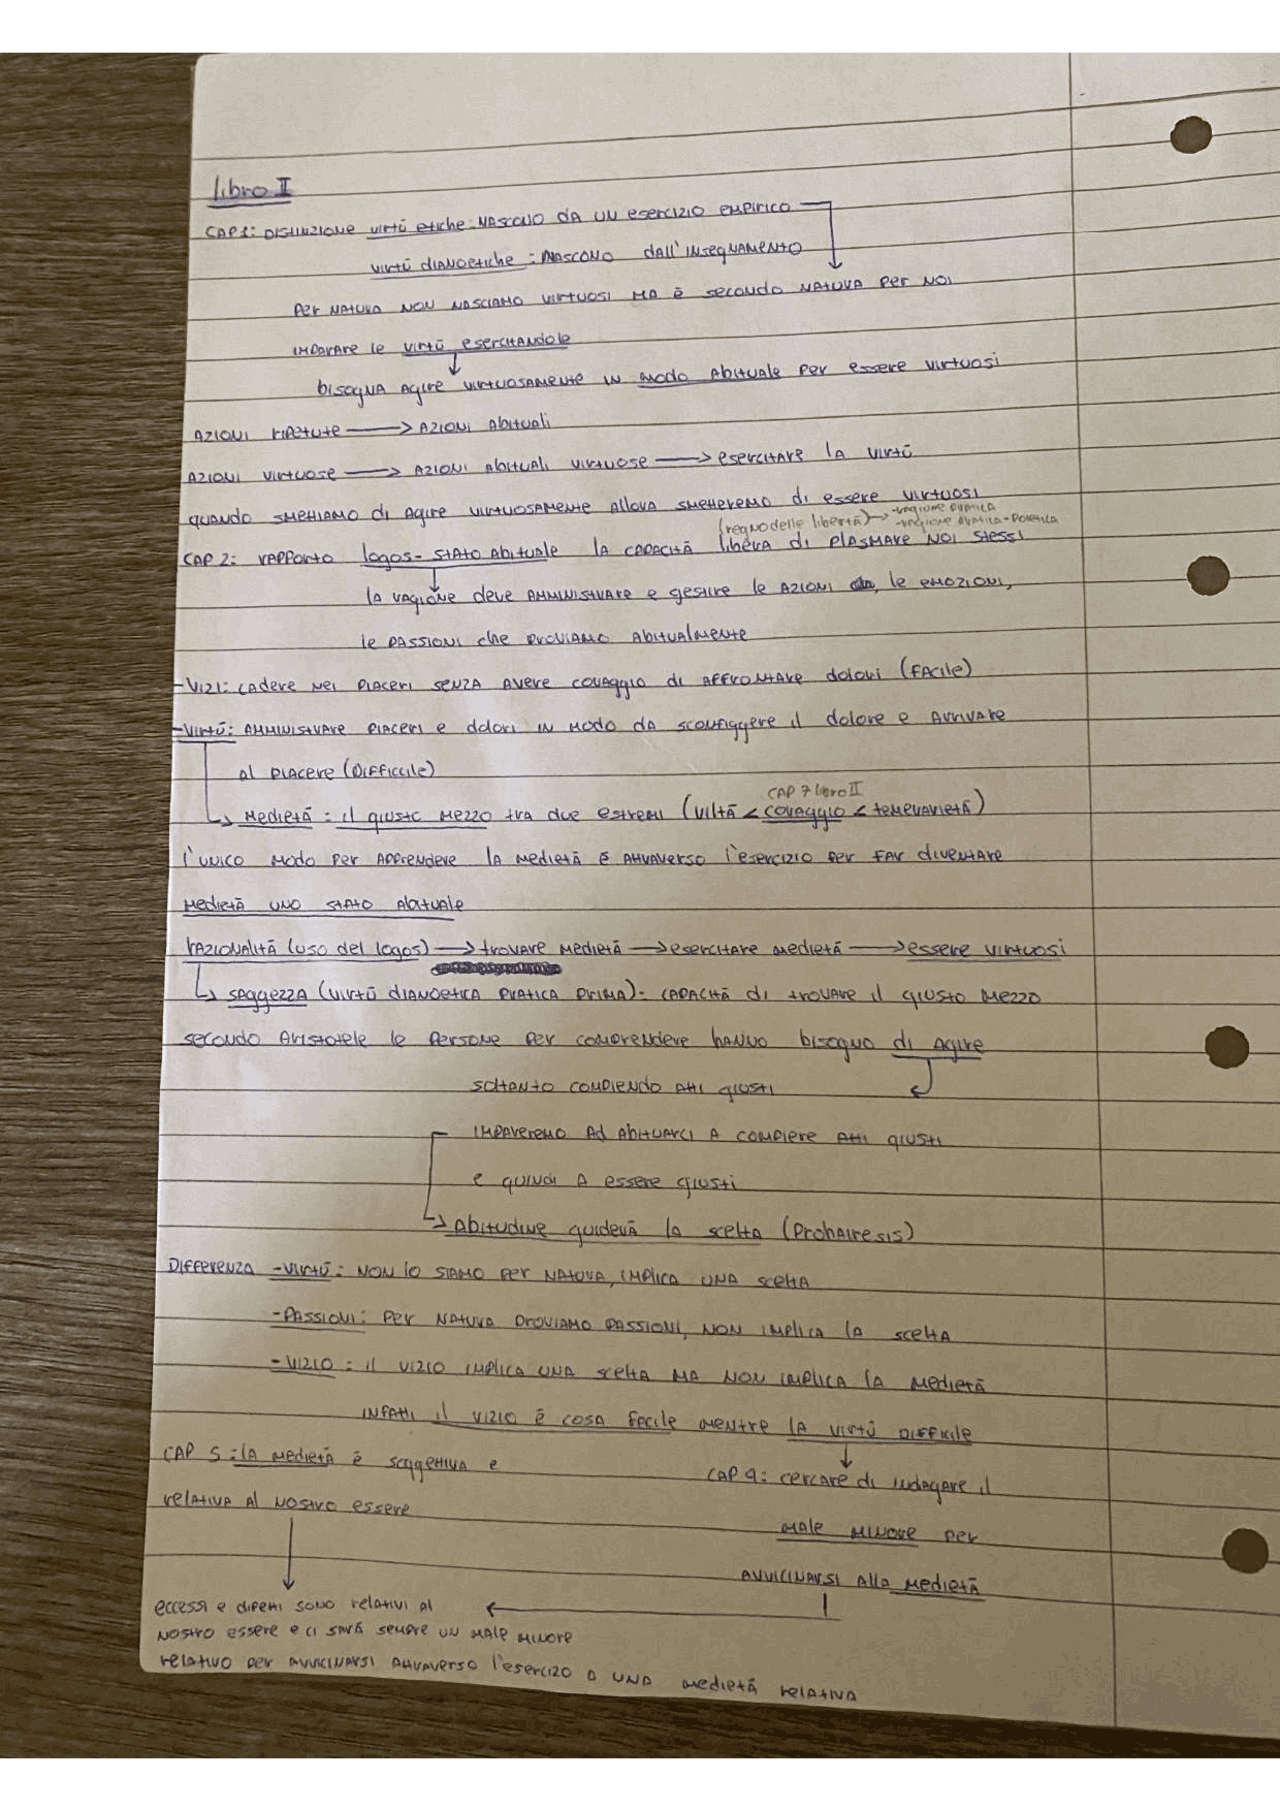 libro II
CAP1: DISTINZIONE virtù etiche: NASCONO DA UN esercizio EMPIRICO
virtù DIANOETICHE: NASCONO DALL'INSEGNAMENTO
PER NATURA NON NASCIAMO VIRTUOSI MA È SECONDO NATURA PER NOI
IMPARARE le VIRTÙ eserCITANDOle
BISOGNA AGIRE VIRTUOSAMENTE IN MODO ABITUALE PER essere VIRTUOSI
AZIONI RIPETUTE → AZIONI ABITUALI
AZIONI VIRTUOSE → AZIONI ABITUALI VIRTUOSE → esercITARE LA VIRTÙ
QUANDO SMETTIAMO DI AGIRE VIRTUOSAMENTE ALLORA SMETTEREMO DI ESSERE VIRTUOSI
(regno delle libertà) → -RAGIONE PRATICA
-RAGIONE PRATICA-POIETICA
CAP 2: RAPPORTO logos- STATO ABITUALE LA CAPACITÀ LIBERA DI PLASMARE NOI STESSI
LA RAGIONE deve AMMINISTRARE e gestire le AZIONI, le EMOZIONI,
le PASSIONI che PROVIAMO ABITUALMENTE
-VIZI: CADERE NEI PIACERI SENZA AVERE CORAGGIO DI AFFRONTARE DOLORI (FACILE)
-VIRTÙ: AMMINISTRARE PIACERI e DOLORI IN MODO DA SCORAGGERE IL DOLORE E ARRIVARE
AL PIACERE (DIFFICILE)
CAP 7 libro II
MEDIETÀ: IL GIUSTO MEZZO TRA DUE ESTREMI (VILTÀ < CORAGGIO < TEMERARIETÀ)
L'UNICO MODO PER APPRENDERE LA MEDIETÀ È ATTRAVERSO L'ESERCIZIO PER FAR DIVENTARE
MEDIETÀ UNO STATO ABITUALE
RAZIONALITÀ (USO DEL LOGOS) → TROVARE MEDIETÀ → ESERCITARE MEDIETÀ → ESSERE VIRTUOSI
↳ SAGGEZZA (VIRTÙ DIANOETICA PRATICA PRIMA)- CAPACITÀ DI TROVARE IL GIUSTO MEZZO
SECONDO ARISTOTELE LE PERSONE PER COMPRENDERE HANNO BISOGNO DI AGIRE
SOLTANTO COMPIENDO ATTI GIUSTI
IMPAREREMO AD ABITUARCI A COMPIERE ATTI GIUSTI
E QUINDI A ESSERE GIUSTI
ABITUDINE GUIDERÀ LA SCELTA (PROHAIRESIS)
DIFFERENZA -VIRTÙ: NON LO SIAMO PER NATURA, IMPLICA UNA SCELTA
-PASSIONI: PER NATURA PROVIAMO PASSIONI, NON IMPLICA LA SCELTA
-VIZIO: IL VIZIO IMPLICA UNA SCELTA MA NON IMPLICA LA MEDIETÀ
INFATTI IL VIZIO È COSA FACILE MENTRE LA VIRTÙ DIFFICILE
CAP 5: LA MEDIETÀ È SOGGETTIVA E
RELATIVA AL NOSTRO ESSERE
CAP 9: CERCARE DI INDAGARE IL
MALE MINORE PER
AVVICINARSI ALLA MEDIETÀ
ECCESSI E DIFETTI SONO RELATIVI AL
NOSTRO ESSERE E CI SARÀ SEMPRE UN MALE MINORE
RELATIVO PER AVVICINARSI ATTRAVERSO L'ESERCIZO A UNA MEDIETÀ RELATIVA